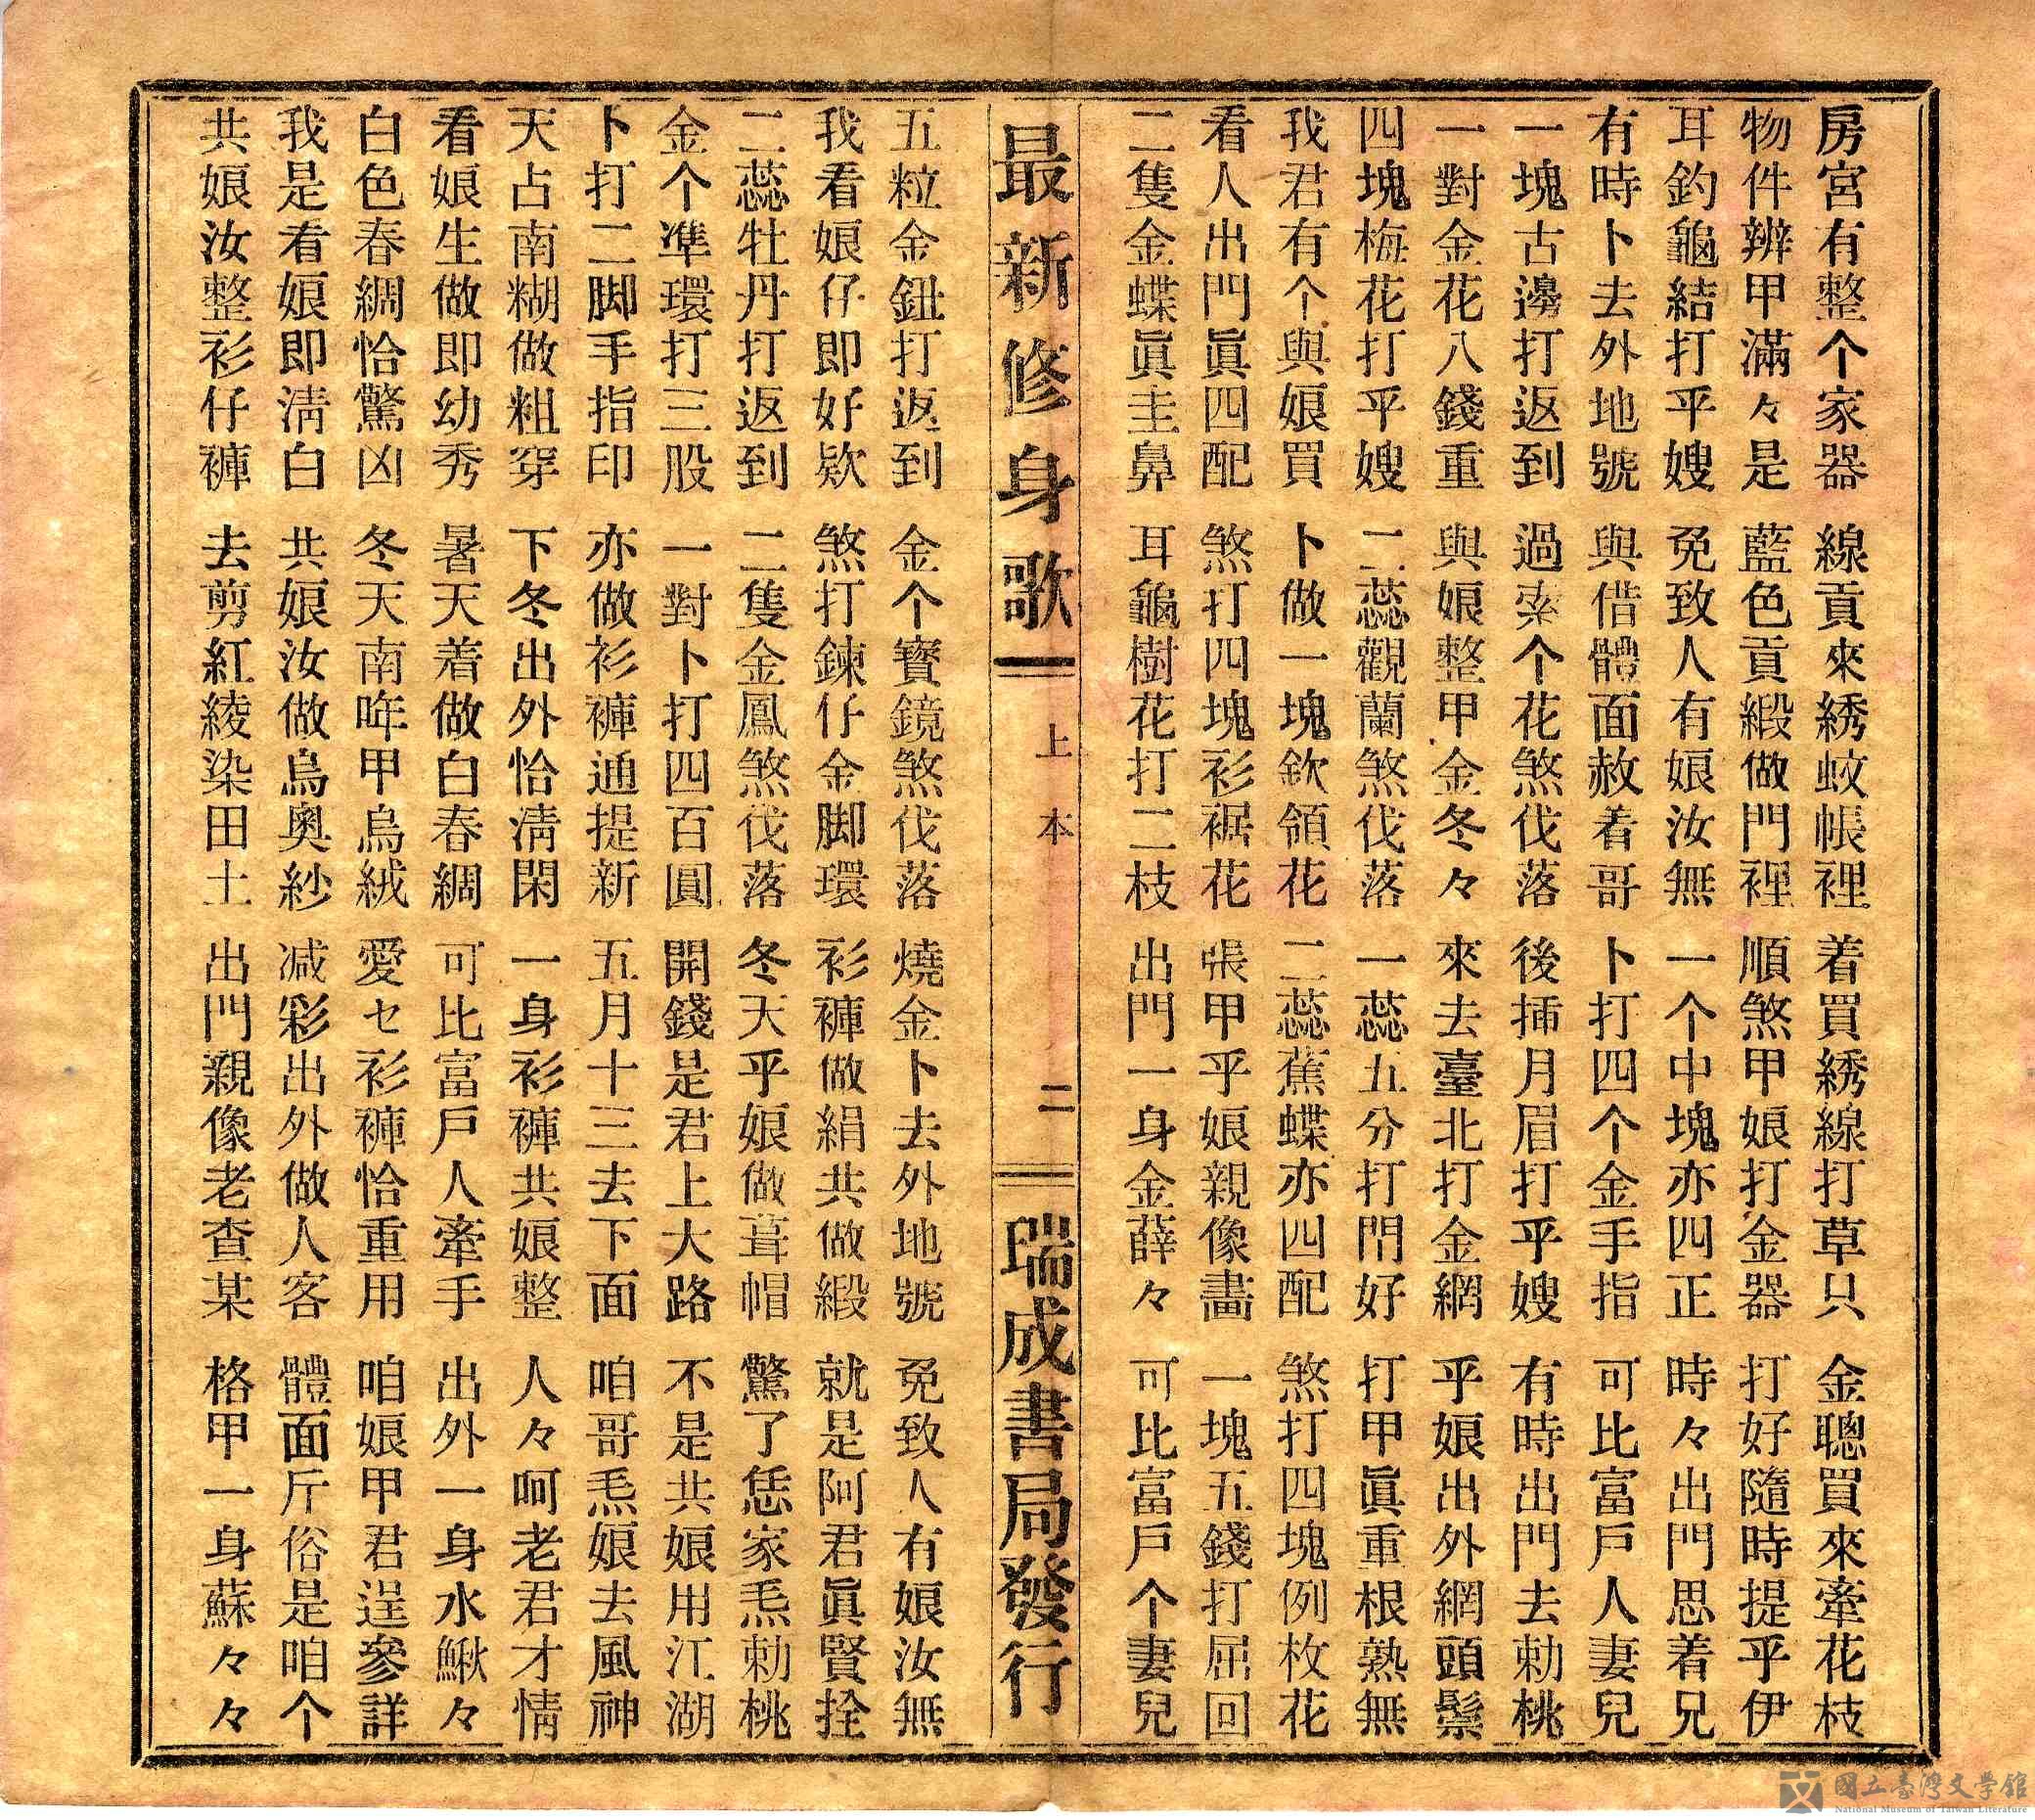 房宮有整个家器　線貢來綉蚊帳裡　着買綉線打草只　金聰買來牽花枝
物件辨甲滿々是　藍色貢緞做門裡　順煞甲娘打金器　打好隨時提乎伊
耳鈎龜結打平嫂　免致人有娘汝無　一个中塊亦四正　時々出門思着兄
有時卜去外地號　與借體面赦看哥　卜打四个金手指　可比富戶人妻兒
一塊古邊打返到　過索个花煞伐落　後揷月眉打乎嫂　有時出門去勅桃
一對金花八錢重　與娘整甲金冬々　來去臺北打金網　乎娘出外網頭鬃
四塊梅花打平嫂　二蕊觀蘭煞伐落　一蕊五分打門好　打甲眞重根熟無
我君有个與娘買　卜做一塊欽領花　二蕊蕉蝶亦四配　煞打四塊例枚花
看人出門眞四配　煞打四塊衫裾花　張甲乎娘親像畵　一塊五錢打屈回
二隻金蝶眞圭鼻　耳龜樹花打二枝　出門一身金薛々　可比富戶个妻兒
最新修身歌　上本　二　瑞成書局發行
五粒金鈕打返到　金个寳鏡煞伐落　燒金卜去外地號　免致人有娘汝無
我看娘仔即好欵　煞打鍊仔金脚環　衫褲做絹共做緞　就是阿君眞賢拴
二蕊牡丹打返到　二隻金鳳煞伐落　冬天乎娘做葺帽　驚了恁家炁勅桃
金个準環打三股　一對卜打四百圓　開錢是君上大路　不是共娘用江湖
卜打二脚手指印　亦做衫褲通提新　五月十三去下面　咱哥炁娘去風神
天占南糊做粗穿　下冬出外恰淸閑　一身衫褲共娘整　人々呵老君才情
看娘生做即幼秀　暑天着做白春綢　可比富戶人牽手　出外一身水鰍々
白色春綢恰驚凶　冬天南哖甲烏絨　愛セ衫褲恰重用　咱娘甲君逞參詳
我是看娘即淸白　共娘汝做烏奧紗　減彩出外做人客　體面斤俗是咱个
共娘汝整衫仔褲　去剪紅綾染田土　出門親像老查某　格甲一身蘇々々